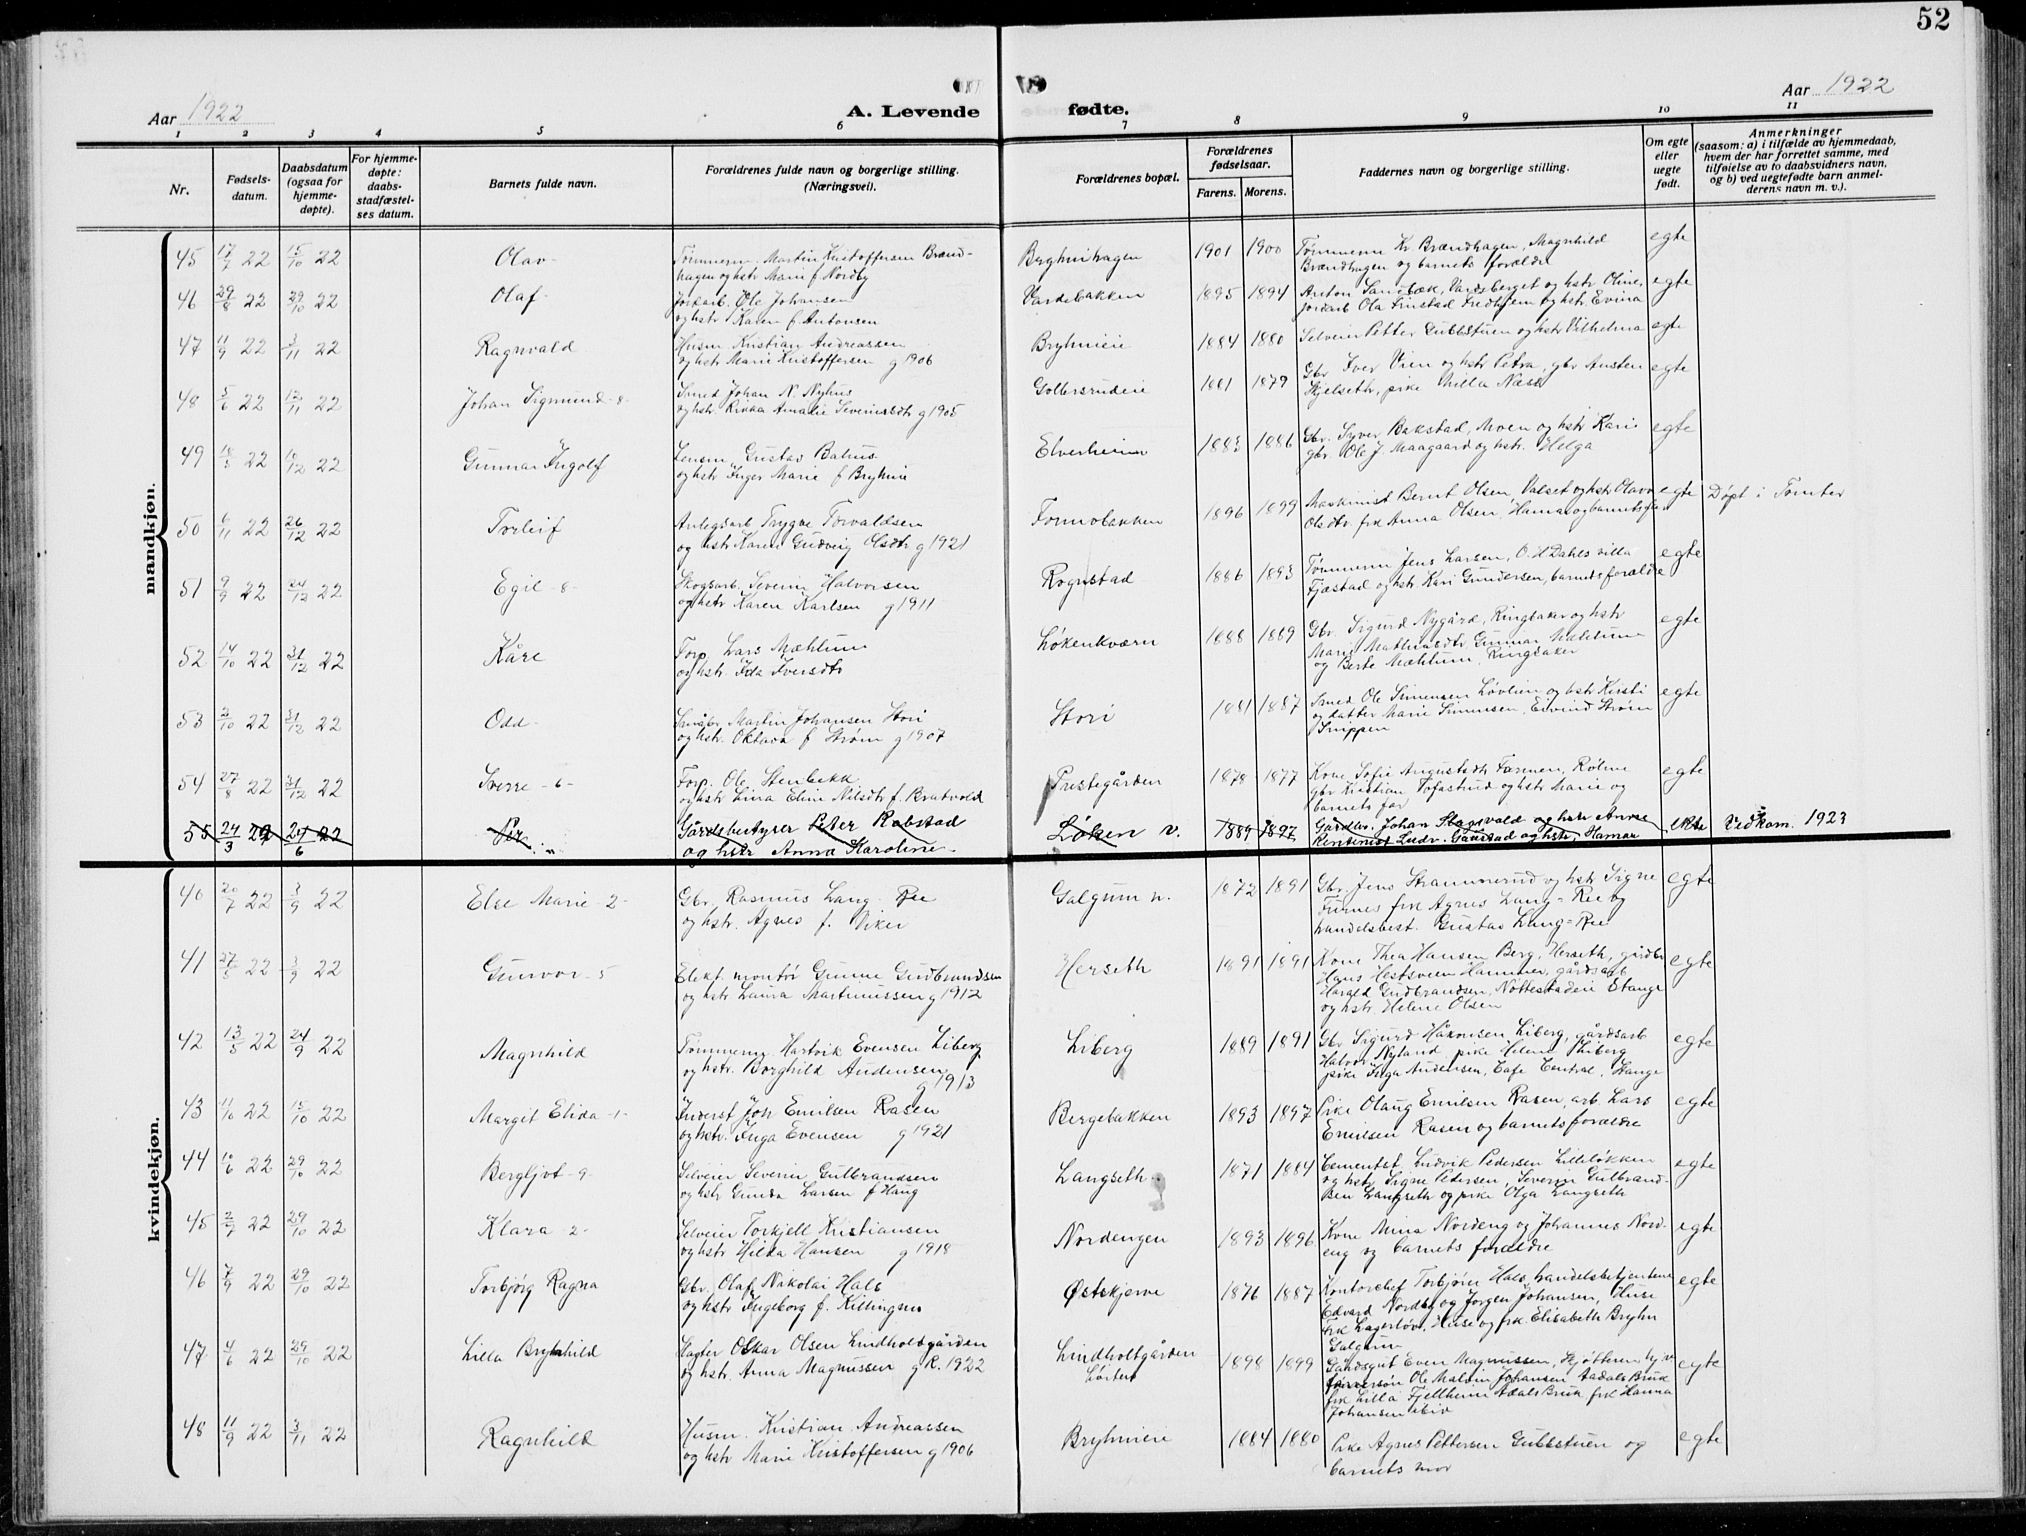 52
Aar 1922
A. Levende
fødte.
Aar 1922
1 2 3 4 5 6 7 8 9 10 11
Nr.
Fødsels-
datum.
Daabsdatum
(ogsaa for
hjemme-
døpte).
For hjemme-
døpte:
daabs-
stadfæstel-
ses datum.
Barnets fulde navn.
Forældrenes fulde navn og borgerlige stilling.
(Næringsvei).
Forældrenes bopæl.
Forældrenes
fødselsaar.
Farens. Morens.
Faddernes navn og borgerlige stilling.
Om egte
eller
uegte
født.
Anmerkninger
(saasom: a) i tilfælde av hjemmedaab,
hvem der har forrettet samme, med
tilføielse av to daabsvidners navn,
og b) ved uegtefødte barn anmel-
derens navn m. v.).
mandkjøn.
45 17/7 22 15/10 22 Olav - Tømmerm. Martin Kristoffersen Brænd-
hagen og hstr Marie f Nordby
Bryhnihagen 1901 1900 Tømmerm Kr Brændhagen, Magnhild
Brændhagen og barnets forældre
egte
46 29/8 22 29/10 22 Olaf - Jordarb. Ole Johansen
og hstr Karen f. Antonsen
Vardebakken 1895 1894 Anton Sandbæk, Vardeberget og hstr Oline,
jordarb Ola Finstad Fredhjem og hstr Evina
egte
47 11/9 22 3/11 22 Ragnvald Husm Kristian Andreassen
og hstr Marie Kristoffersen g 1906
Bryhnieie 1884 1880 Selveier Petter Gubbstuen og hstr Vilhelma
egte
48 5/6 22 12/11 22 Johan Sigmund - 8 - Smed Johan N. Nyhus
og hstr. Rikka Amalie Severinsdtr g 1905
Golbersrudeie 1881 1879 Gbr Iver Vien og hstr Petra, gbr Austen
Hjelseth, pike Milla Næss
egte
49 22 22 Gunnar Ingolf Lensm Gustav Balhus
og hstr Inger Marie f Bryhni
Elverheim 1883 1886 Gbr. Syver Bakstad, Moen og hstr Kari
gbr. Ole J. Maagaard og hstr. Helga
egte
50 6/11 22 26/12 22 Torleif Anlegsarb Trygve Torvaldsen
og hstr Karen Gudveig Olsdtr g 1921
Fonnobakken 1896 1899 Maskinist Bernt Olsen, Valset og hstr Olava
Olsdtr. frk Anna Olsen, Hamar og barnets far
egte Døpt i Tomter
51 9/9 22 24/12 22 Egil - 8 - Skogsarb. Severin Halvorsen
og hstr Karen Karlsen g 1911
Rognstad 1886 1893 Tømmerm Jens Larsen, O. H Dahls villa
Fjæstad og hstr Kari Gundersen, barnets forældre
egte
52 14/10 22 31/12 22 Kåre Forp. Lars Mæhlum
og hstr. Ida Iversdtr
Løkenkværn 1888 1889 Gbr. Sigurd Nygård, Ringsaker og hstr
Marie Mathiasdtr, Gunnar Mæhlum
og Berte Mæhlum, Ringsaker
egte
53 3/10 22 31/12 22 Odd - Småbr Martin Johansen Stori
og hstr. Oktava f Strøm g 1907
Stori 1881 1887 Smed Ole Simensen Løvlien og hstr Kirsti
og datter Marie Simensen, Eivind Strøm
Snippen
egte
54 27/8 22 31/12 22 Sverre - 6 - Forp. Ole Stenbekk
og hstr Lina Eline Nilsdtr f. Bratvold
Prestegården 1878 1877 Kone Sofie Augustsdtr Farmen, Røhne
gbr Kristian Tofastrud og hstr Marie og
barnets far
egte
55 24/3 22 24/6 22 Per Gårdsbestyrer Peter Robstad
og hstr Anna Karoline
Løken v. 1889 1897 Gårdbr. Johan Slagsvold og hstr Anne
Rentenist Ludv. Gaustad og hstr, Hamar
ekte Vedkom. 1923
kvindekjøn.
40 20/7 22 3/9 22 Else Marie - 2 - Gbr. Rasmus Lang-Ree
og hstr. Agnes f. Viker
Galgum n. 1872 1891 Gbr. Jens Strammerud og hstr Signe
Furnes frk Agnes Lang-Ree og
handelsbest. Gustav Lang-Ree
egte
41 27/5 22 3/9 22 Gunvor - 5 Elekt. montør Gunne Gudbrandsen
og hstr Laura Martinussen g 1912
Herseth 1891 1891 Kone Thea Hansen Berg, Herseth, gårdbr
Hans Hestsveen Hammer, gårdsarb
Harald Gudbrandsen, Nøttestadeie Stange
og hstr Helene Olsen
egte
42 13/5 22 24/9 22 Magnhild Tømmerm Hartvik Evensen Liberg
og hstr. Borghild Andensen
g 1913
Liberg 1889 1891 Gbr Sigurd Håkonsen Liberg, gårdsarb
Halvor Nyland pike Helene Liberg
pike Inga Andensen, Cafe Central, Stange
egte
43 11/10 22 15/10 22 Margit Elida - 1 - Inderst Joh Emilsen Rasen
og hstr. Inga Evensen g 1921
Bergebakken 1893 1897 Pike Olaug Emilsen Rasen, arb Lars
Emilsen Rasen og barnets forældre
egte
44 10/6 22 29/10 22 Bergljot - 9 - Selveier Severin Gulbrandsen
og hstr Gunda Larsen f Haug
Langseth 1871 1884 Cementst. Ludvik Pedersen Lilleløkken
og hstr Signe Pedersen, Severin Gulbrand-
sen Langseth og pike Olga Langseth
egte
45 2/7 22 29/10 22 Klara - 2 - Selveier Torkjell Kristiansen
og hstr Hilda Hansen g 1918
Nordengen 1893 1896 Kone Mina Nordeng og Johannes Nord-
eng og barnets forældre
egte
46 7/9 22 29/10 22 Torbjørg Ragna Gbr. Olaf Nikolai Hals
og hstr Ingeborg f. Killingmo
Østskjerve 1876 1887 Kontorchef Torbjørn Hals, handelsbetjentene
Edvard Nordby og Jørgen Johansen, Huse
frk Lagerløv, Huse og frk. Elisabeth Bryhn
Galgum
egte
47 4/6 22 29/10 22 Lilla Brynhild Bagter Oskar Olsen Lindholtgården
og hstr. Anna Magnussen g K. 1922
Lindholtgården
Løiten
1898 1899 Gårdsgut Even Magnussen,
Ole Martin Johansen Aadals Bruk
frk Lilla Fjellheim Ådals Bruk frk Hanna
Johansen ibid
egte
48 11/9 22 3/11 22 Ragnhild Husm. Kristian Andreassen
og hstr Marie Kristoffersen g 1906
Bryhnieie 1884 1880 Pike Agnes Pettersen Gubbstuen og
barnets mor
egte